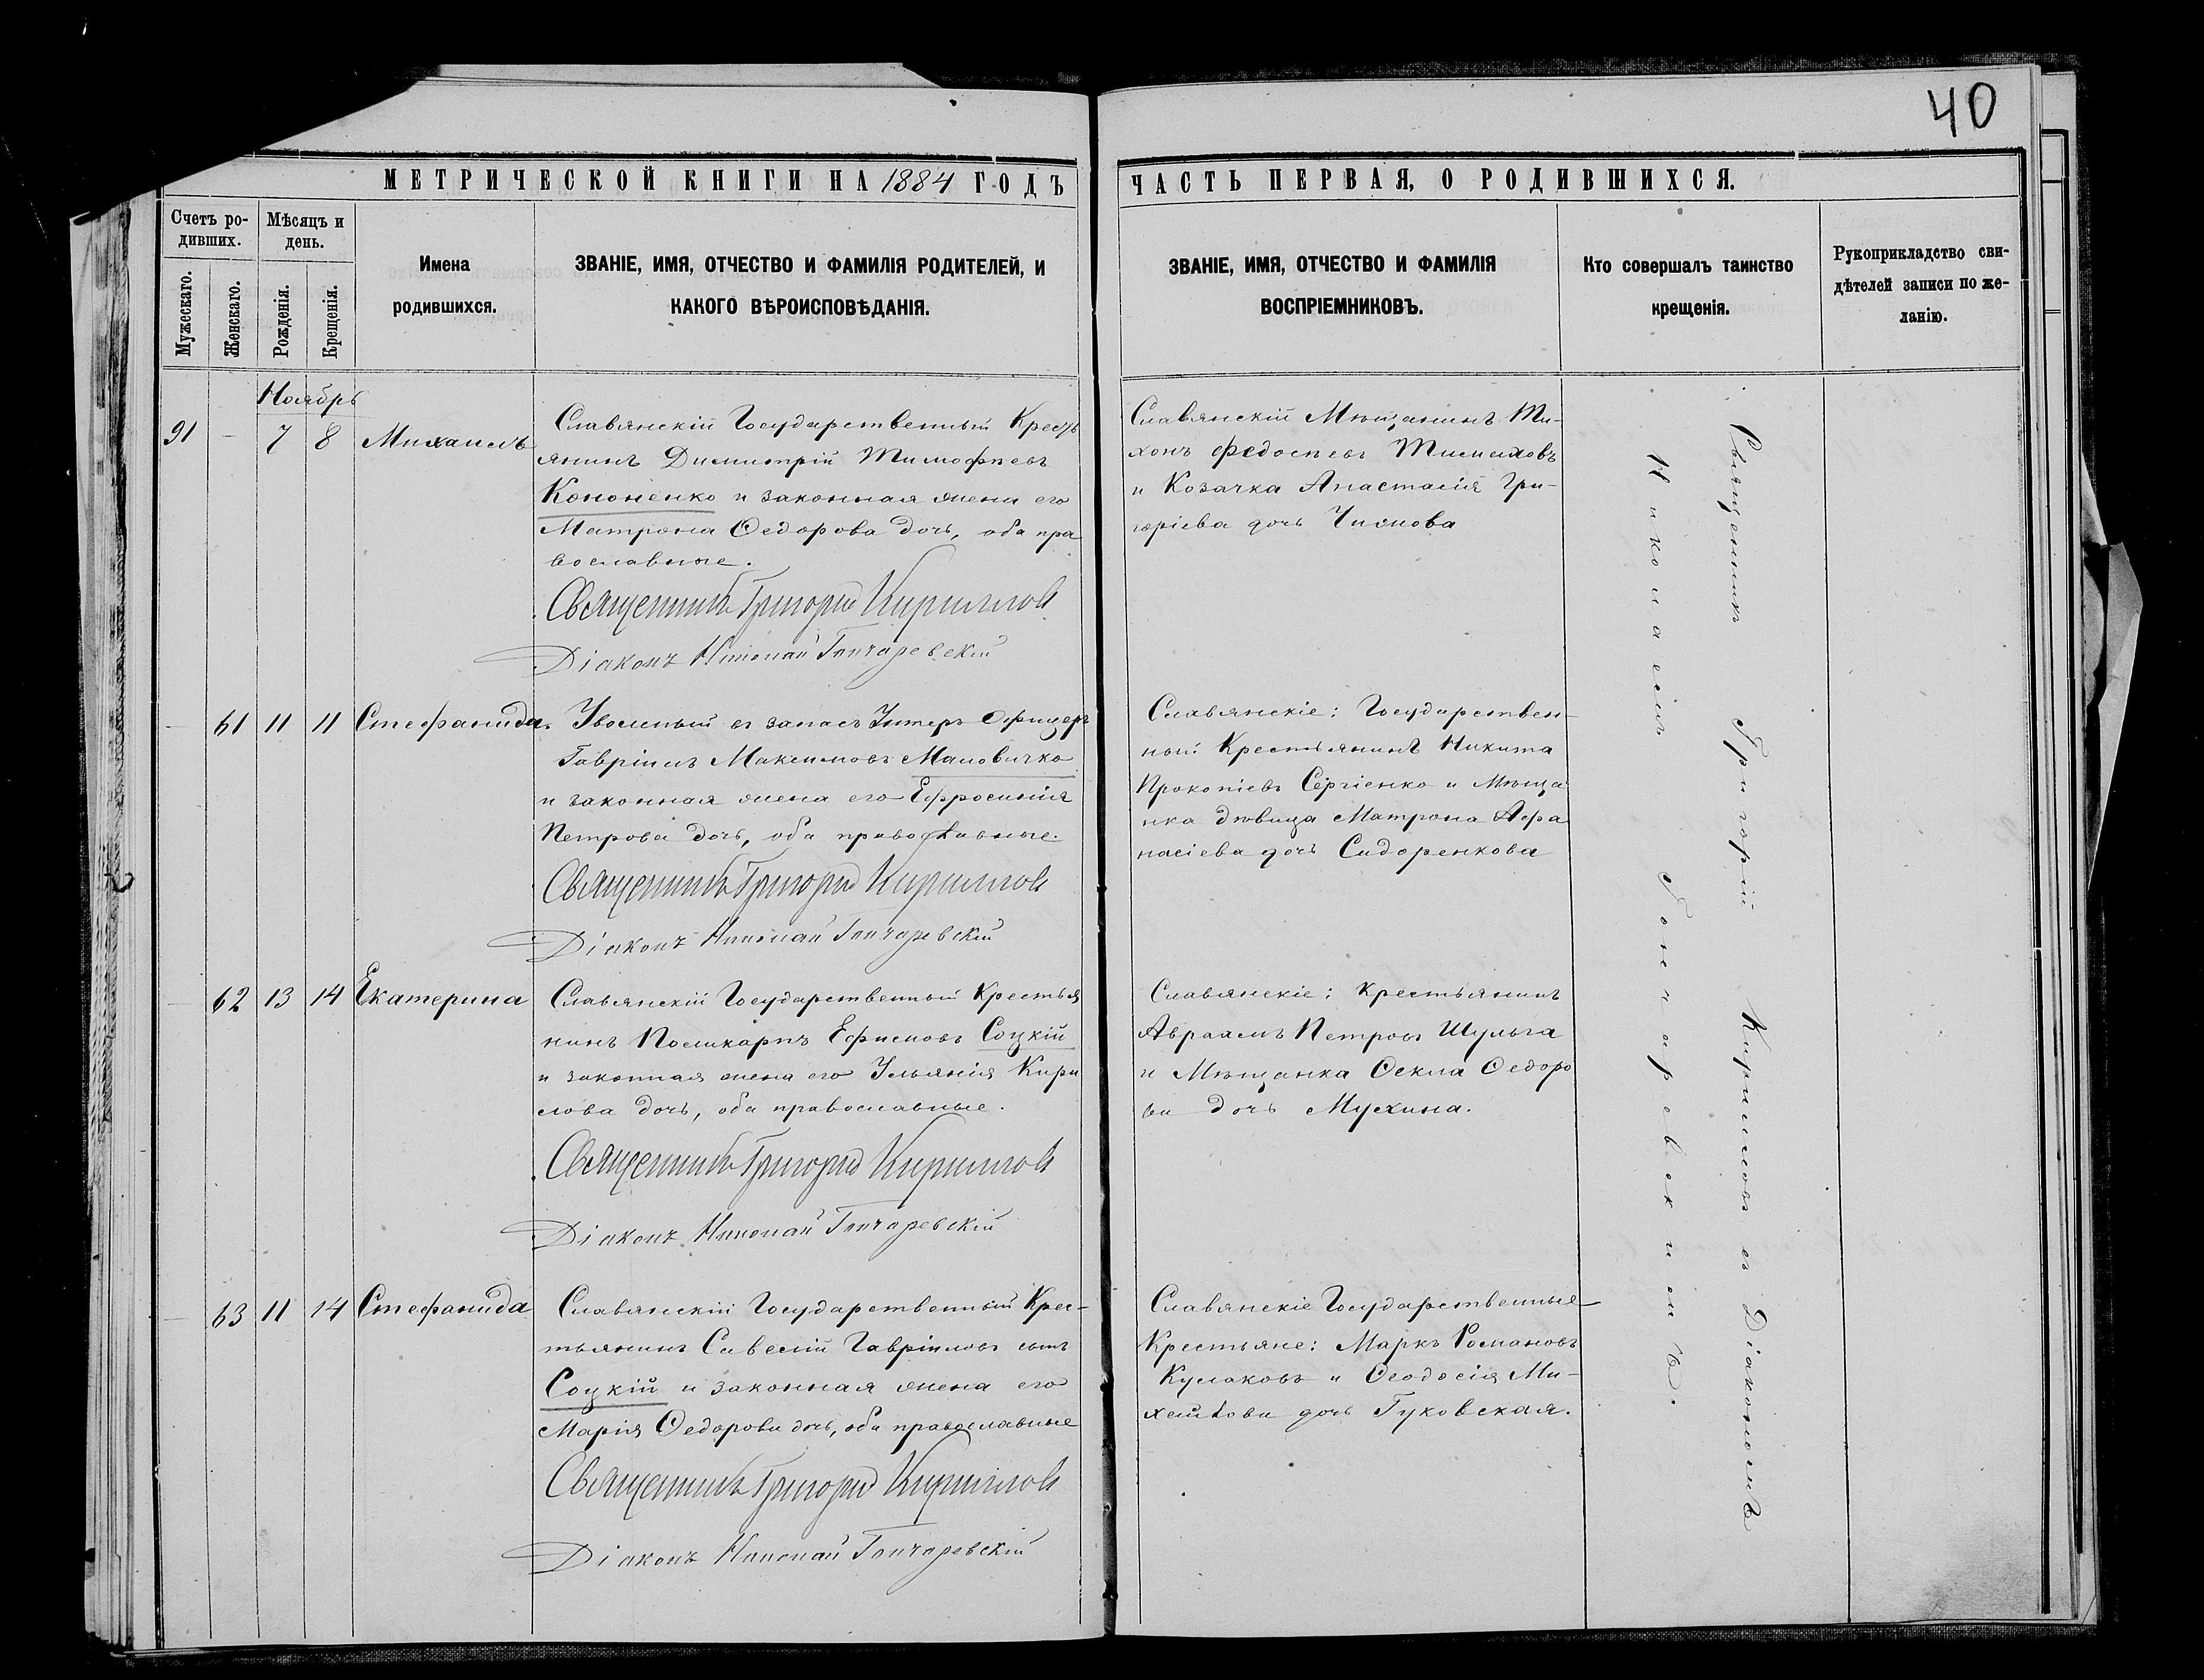 40
МЕТРИЧЕСКОЙ КНИГИ НА 1884 ГОДЪ
ЧАСТЬ ПЕРВАЯ, О РОДИВШИХСЯ.
Счетъ ро-
дивших.
Мужескаго.
Женскаго.
Мѣсяцъ и
день.
Рожденія.
Крещенія.
Имена
родившихся.
ЗВАНІЕ, ИМЯ, ОТЧЕСТВО И ФАМИЛІЯ РОДИТЕЛЕЙ, И
КАКОГО ВѢРОИСПОВѢДАНІЯ.
ЗВАНІЕ, ИМЯ, ОТЧЕСТВО И ФАМИЛІЯ
ВОСПРІЕМНИКОВЪ.
Кто совершалъ таинство
крещенія.
Рукоприкладство сви-
дѣтелей записи по же-
ланію.
Ноябрь
91 - 7 8 Михаилъ
Славянскій Государственный Кресть
янинъ Димитрій Тимофѣевъ
Кононенко и законная жена его
Матрона Ѳедорова дочь, оба пра
вославные.
Священникъ Григорій Кирилловъ
Діаконъ Николай Гончаревскій
Славянскій Мѣщанинъ Ти-
хонъ Федосѣевъ
и Козачка Анастасія Гри-
горіева дочь
61 11 11 Стефанида.
Уволеный въ запасъ Унтеръ Офицеръ
Гавріилъ Максимовъ Маловичко
и законная жена его Ефросинія
Петрова дочь, оба православные.
Священникъ Григорій Кирилловъ
Діаконъ Николай Гончаревскій
Славянскіе: Государствен-
ный Крестьянинъ Никита
Прокопіевъ Сергіенко и Мѣща
нка дѣвица Матрона Афа
насіева дочь Сидоренкова
62 13 14 Екатерина
Славянскій Государственный Крестья
нинъ Поликарпъ Ефимовъ Соцкій
и законная жена его Ульянія Кири
лова дочь, оба православные.
Священникъ Григорій Кирилловъ
Діаконъ Николай Гончаревскій
Славянскіе: Крестьянинъ
Авраамъ Петровъ Шульга
и Мѣщанка Ѳекла Ѳедоро
ва дочь Мухина.
63 11 14 Стефанида
Славянскій Государственный Крес-
тьянинъ Савелій Гавріиловъ сынъ
Соцкій и законная жена его
Марія Ѳедорова дочь, оба православные
Священникъ Григорій Кирилловъ
Діаконъ Николай Гончаревскій
Славянскіе Государственные
Крестьяне: Маркъ Романовъ
Кулаковъ и Ѳеодосія Ми-
хайлова дочь Гуковская.
Священникъ Григорій Кирилловъ съ Діакономъ
Николаемъ Гончаревскимъ.